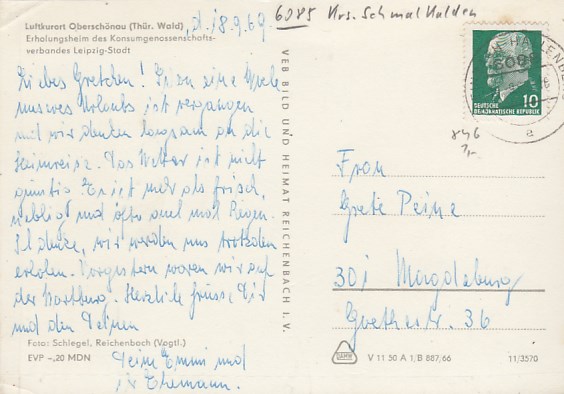 Luftkurort Oberschönau (Thür. Wald)
Erholungsheim des Konsumgenossenschafts-
verbandes Leipzig-Stadt
d. 18.9.69
6085 Krs. Schmalkalden
Liebes Gretchen! Schon eine Woche
unseres Urlaubs ist vergangen
und wir denken langsam an die
Heimreise. Das Wetter ist nicht
günstig. Es ist mehr als frisch,
neblig und öfter auch mal Regen.
Ich denke, wir werden uns trotzdem
erholen. Vorgestern waren wir auf
der Wartburg. Herzliche Grüsse Dir
und den Deinen
Deine Emmi und
Ehemann.
Foto: Schlegel, Reichenbach (Vogtl.)
EVP –,20 MDN
VEB BILD UND HEIMAT REICHENBACH I. V.
10
DEUTSCHE
DEMOKRATISCHE REPUBLIK
608
a
846
Frau
Grete Peine
301 Magdeburg
Goethestr. 36
V 11 30 A 1/B 887/66
11/3570